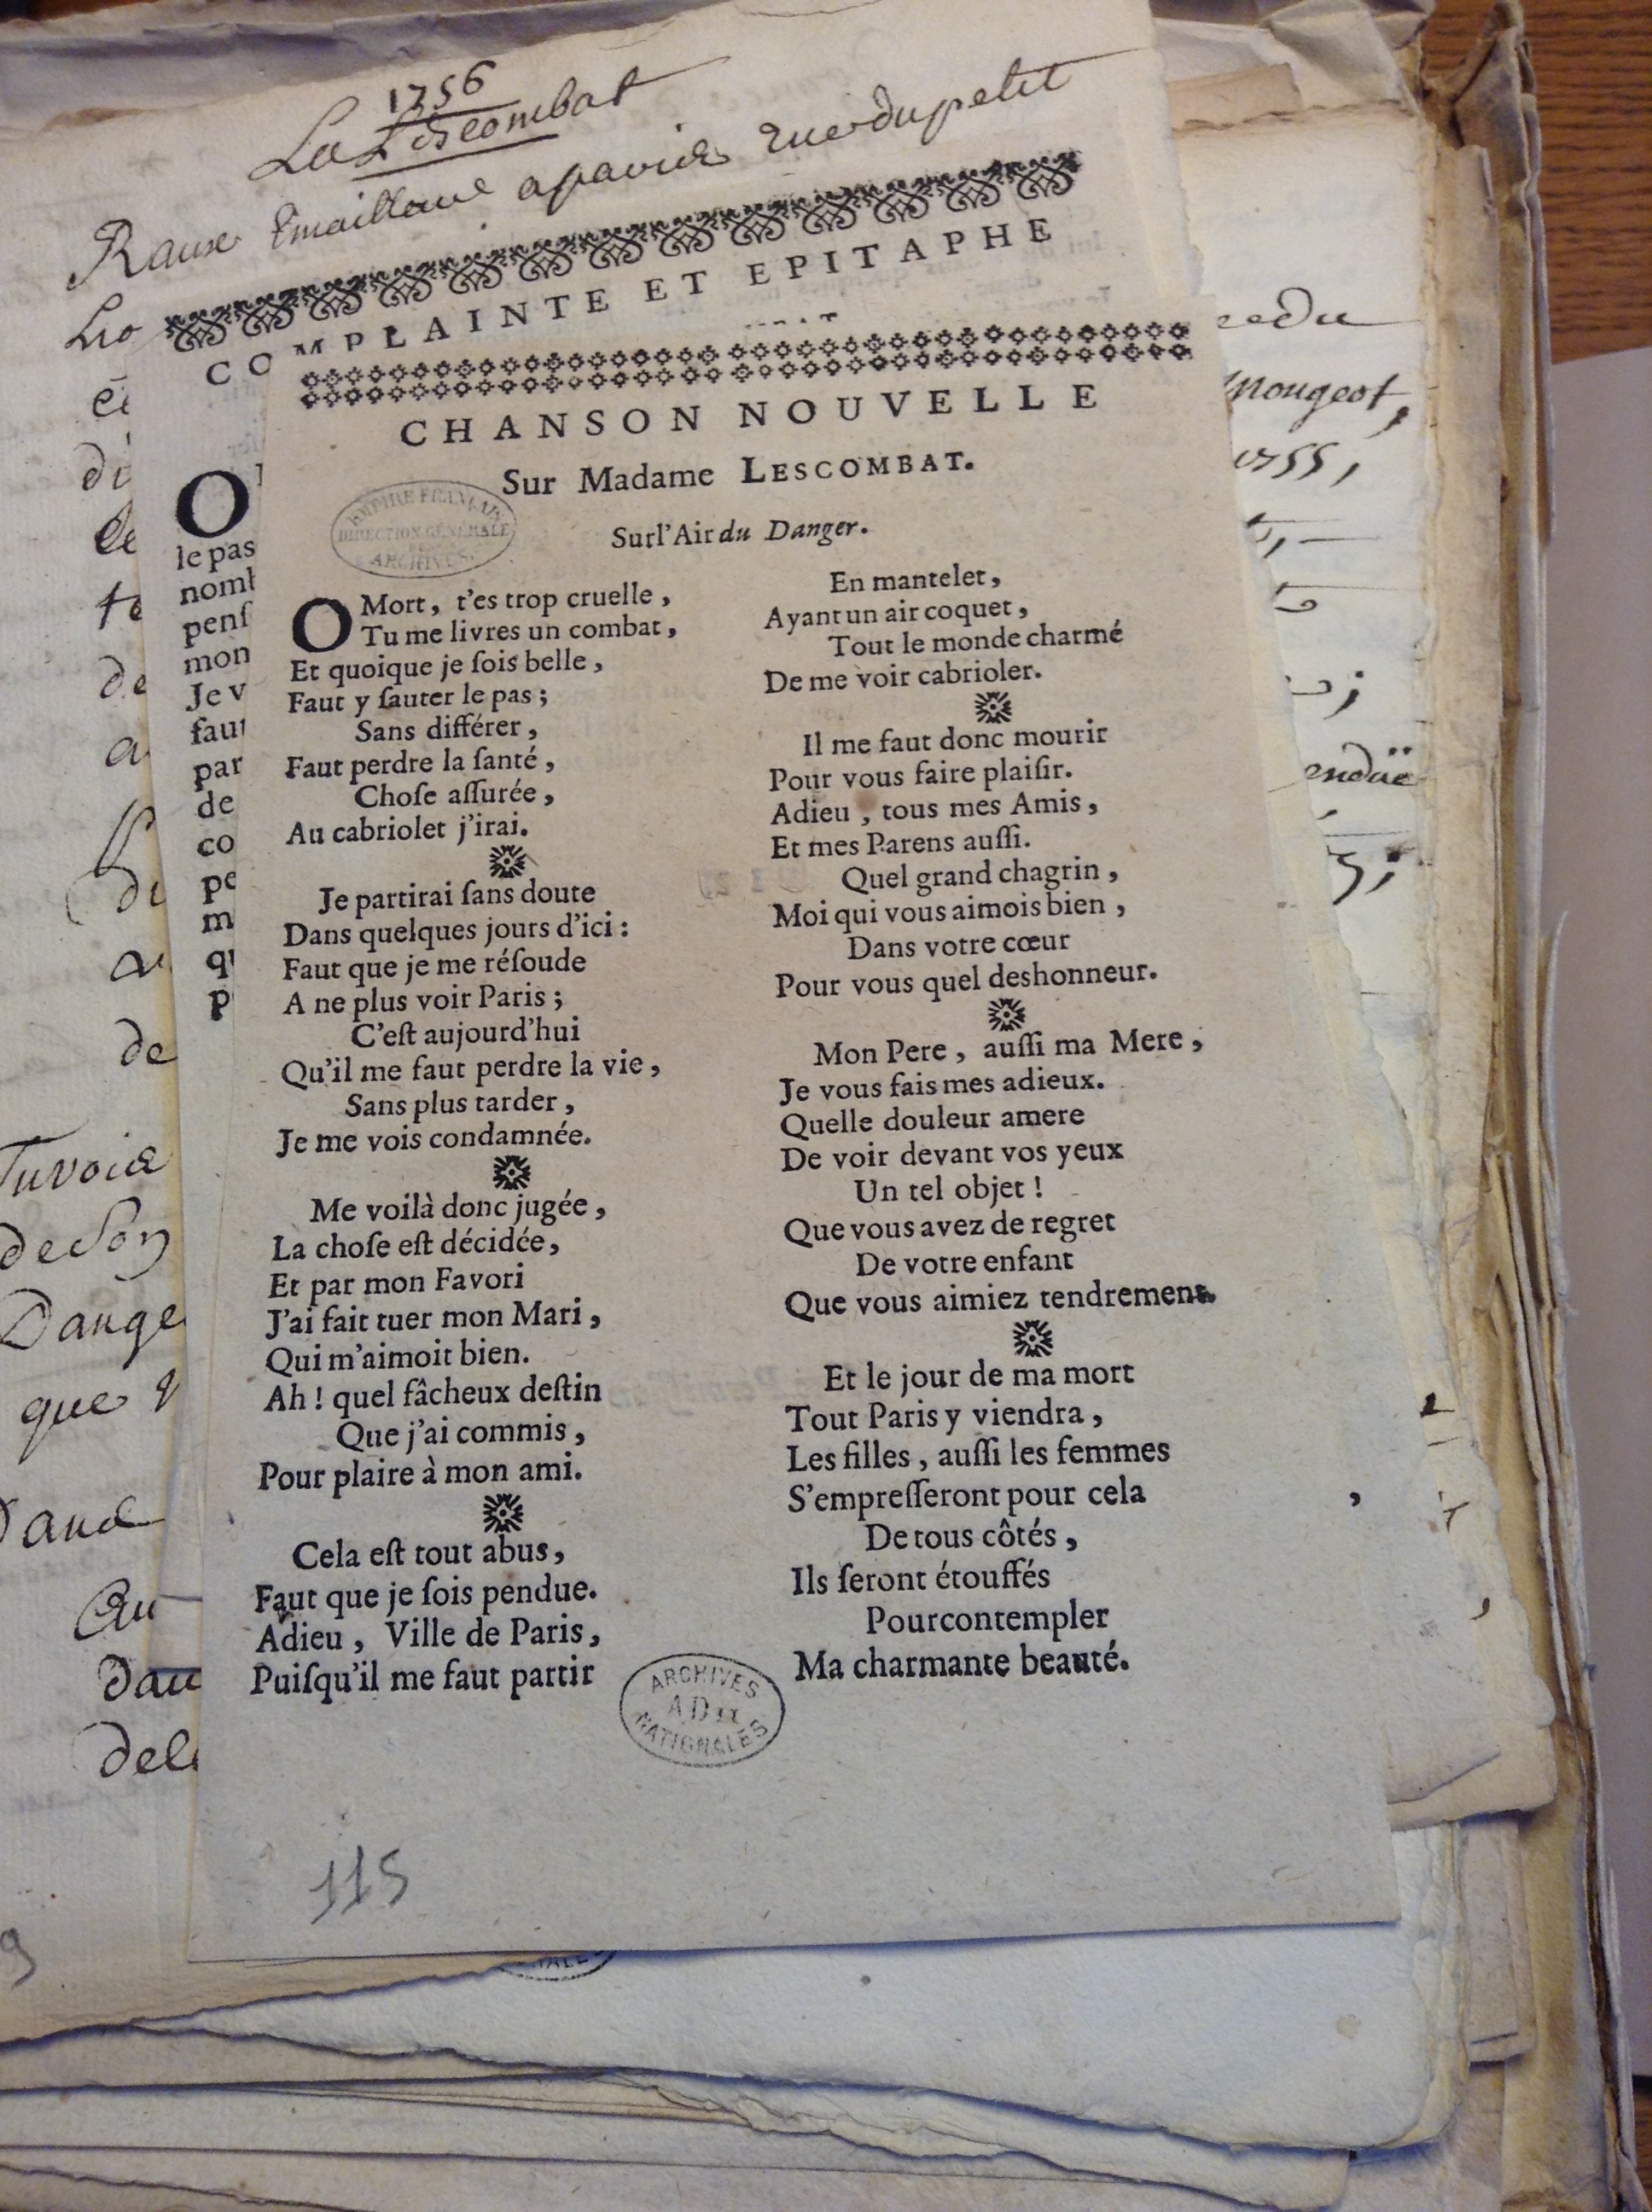 1756
La Lescombat
rue du petit
COMPLAINTE ET EPITAPHE
CHANSON NOUVELLE
Sur Madame LESCOMBAT.
Surl'Air du Danger.
EMPIRE FRANÇAIS
DIRECTION GÉNÉRALE
DES
ARCHIVES.
O Mort, t'es trop cruelle,
Tu me livres un combat,
Et quoique je ſois belle,
Faut y ſauter le pas;
Sans différer,
Faut perdre la ſanté,
Choſe aſſurée,
Au cabriolet j'irai.
Je partirai ſans doute
Dans quelques jours d'ici:
Faut que je me réſoude
A ne plus voir Paris;
C'eſt aujourd'hui
Qu'il me faut perdre la vie,
Sans plus tarder,
Je me vois condamnée.
Me voilà donc jugée,
La choſe eſt décidée,
Et par mon Favori
J'ai fait tuer mon Mari,
Qui m'aimoit bien.
Ah! quel fâcheux deſtin
Que j'ai commis,
Pour plaire à mon ami.
Cela eſt tout abus,
Faut que je ſois pendue.
Adieu, Ville de Paris,
Puiſqu'il me faut partir
En mantelet,
Ayant un air coquet,
Tout le monde charmé
De me voir cabrioler.
Il me faut donc mourir
Pour vous faire plaiſir.
Adieu, tous mes Amis,
Et mes Parens auſſi.
Quel grand chagrin,
Moi qui vous aimois bien,
Dans votre cœur
Pour vous quel deshonneur.
Mon Pere, auſſi ma Mere,
Je vous fais mes adieux.
Quelle douleur amere
De voir devant vos yeux
Un tel objet!
Que vous avez de regret
De votre enfant
Que vous aimiez tendrement.
Et le jour de ma mort
Tout Paris y viendra,
Les filles, auſſi les femmes
S'empreſſeront pour cela
De tous côtés,
Ils ſeront étouffés
Pour contempler
Ma charmante beauté.
ARCHIVES
AD XX
NATIONALES
115
O
le pas
nomb
penſ
mon
Je v
faut
par
de
co
pe
m
qu
p
de
de Son
Dange
que
mougeot,
1755,